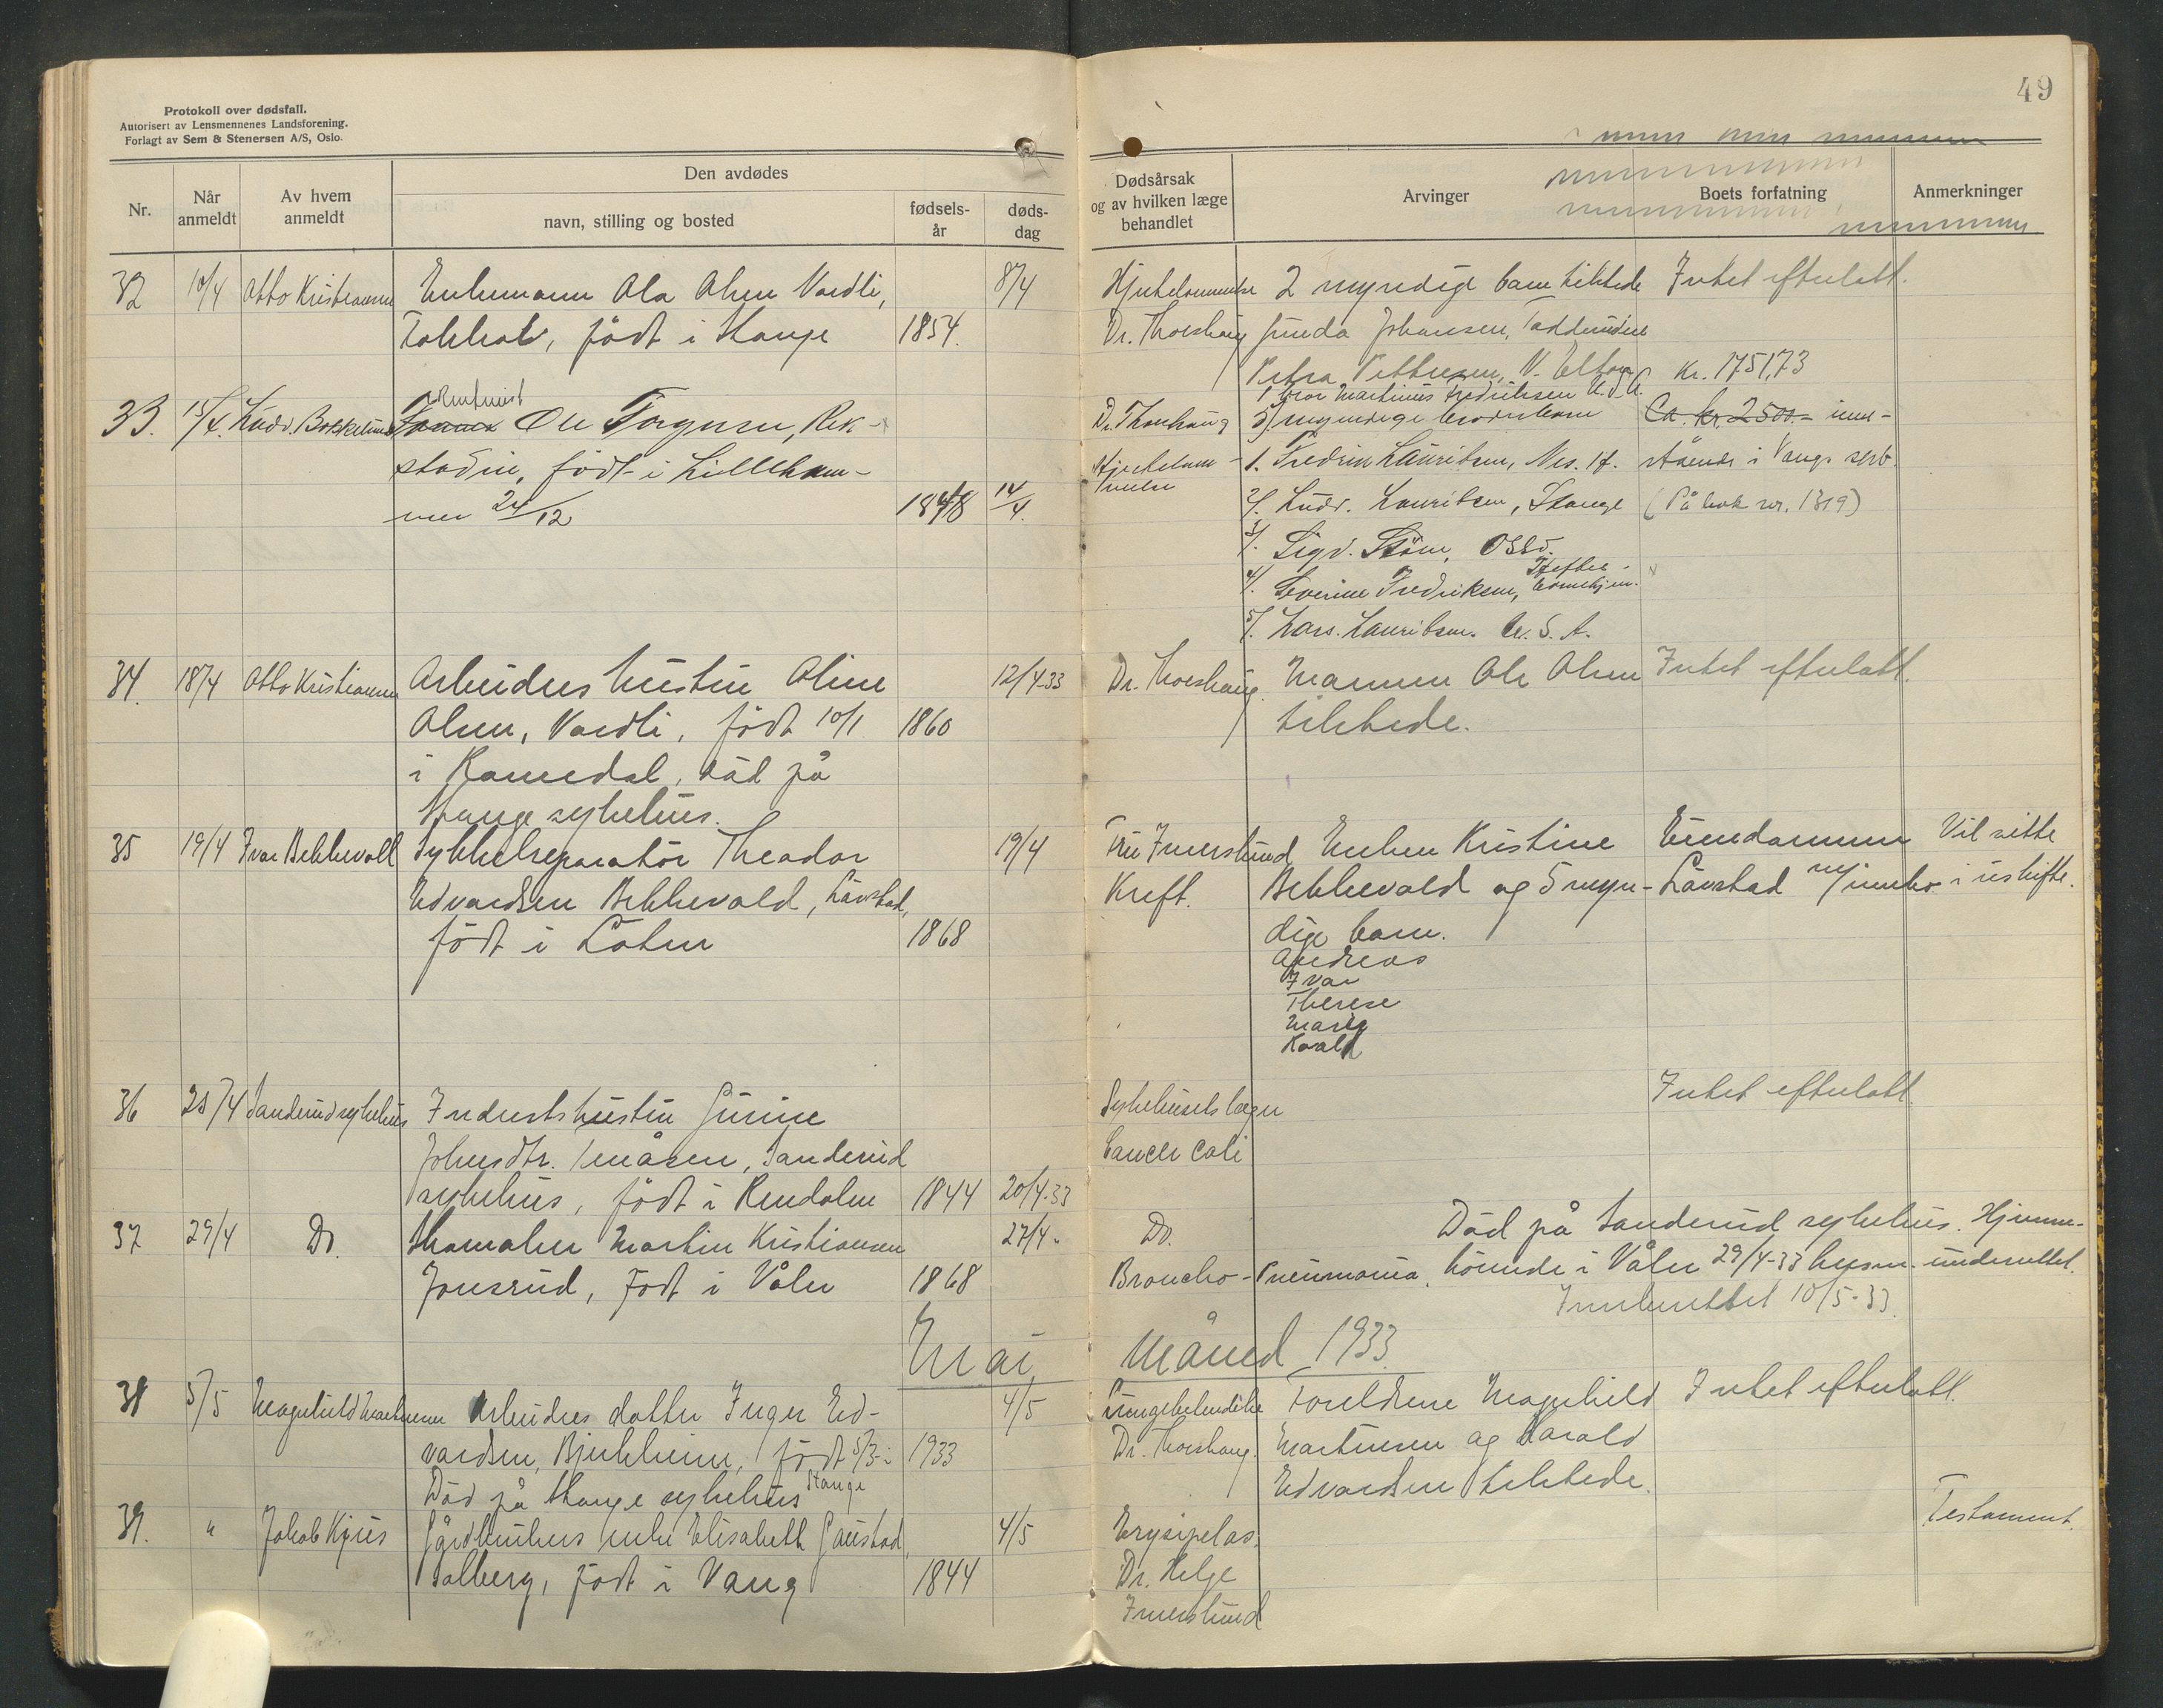 Protokoll over dødsfall.
Autorisert av Lensmennenes Landsforening.
Forlagt av Sem & Stenersen A/S, Oslo.
Nr.
Når anmeldt
Av hvem anmeldt
Den avdødes
navn, stilling og bosted
fødsels-
år
døds-
dag
32 10/4 Otto Kristiansen Enkemann Ola Olsen Vardli, 8/4
født i Stange 1854.
33. 15/4. Ludv. Ole Torgersen, Rek-
stadie, født i Lilleham-
mer 24/12 1848 14/4.
34. 18/4 Otto Kristiansen Arbeiders hustru Oline 12/4-33
Olsen, Vardli, født 10/1 1860
i Romedal, død på
Stange sykehus.
35 19/4 Ivar Bekkevoll Sykkelreparatør Theodor 19/4
Edvardsen Bekkevold, Lavstad,
født i Løten 1868
36 25/4 Sanderud sykehus Inderstshustru Gurine
Johnsdtr. Sanderud
sykehus, født i Rendalen 1844 20/4-33
37 29/4 Do. Skomaker Martin Kristiansen 27/4-
Jonsrud, født i Våler 1868
Mai
38 5/5 Magnhild Martinsen Arbeiders datter Inger Ed- 4/5
vardsen, Bjerkheim, født 5/3- i 1933
Stange
Død på Stange sykehus
39. " Jakob Kjus Gårdbrukers enke Elisabeth Gaustad, 4/5
Solberg, født i Vang 1844
49
Dødsårsak
og av hvilken læge
behandlet
Arvinger
Boets forfatning
Anmerkninger
Hjertelammelse 2 myndige barn tilstede Intet efterlatt.
Dr. Thorshaug Gunda Johansen,
Petra Pettersen, V. Elton Kr. 1751,73
1 bror Martinius Fredriksen U.S.A.
Dr. Thorshaug 5 myndige broderbarn Ca. kr. 2500.- inne-
Hjertelam-
melse
1. Lauritsen, Nes. H. stående i Vangs serb.
2/. Ludv. Lauritsen, Stange (På bok nr. 1319)
3/. Sigv. Strøm, Oslo.
4/. Severine Fredriksen, Toftes
barnehjem.
5/. Lars. Lauritsen. U. S. A.
Dr. Thorshaug. Mannen Ole Olsen Intet efterlatt.
tilstede.
Fru Imerslund Enken Kristine Eiendommen Vil sitte
Kreft. Bekkevold og 5 myn- Lavstad m/innbo i uskifte.
dige barn.
Andreas
Ivar
Therese
Maria
Harald
Sykehusets læger Intet efterlatt
Cancer coli
Do. Død på Sanderud sykehus. Hjemme-
Broncho-Pneumonia. hørende i Våler 29/4-33 lensm. underrettet.
Innberettet 10/5-33.
Måned 1933.
Lungebetendelse Foreldrene Magnhild Intet efterlatt.
Dr. Thorshaug. Martinsen og Harald
Edvardsen tilstede.
Testament.
Erysipelas.
Dr. Helge
Imerslund